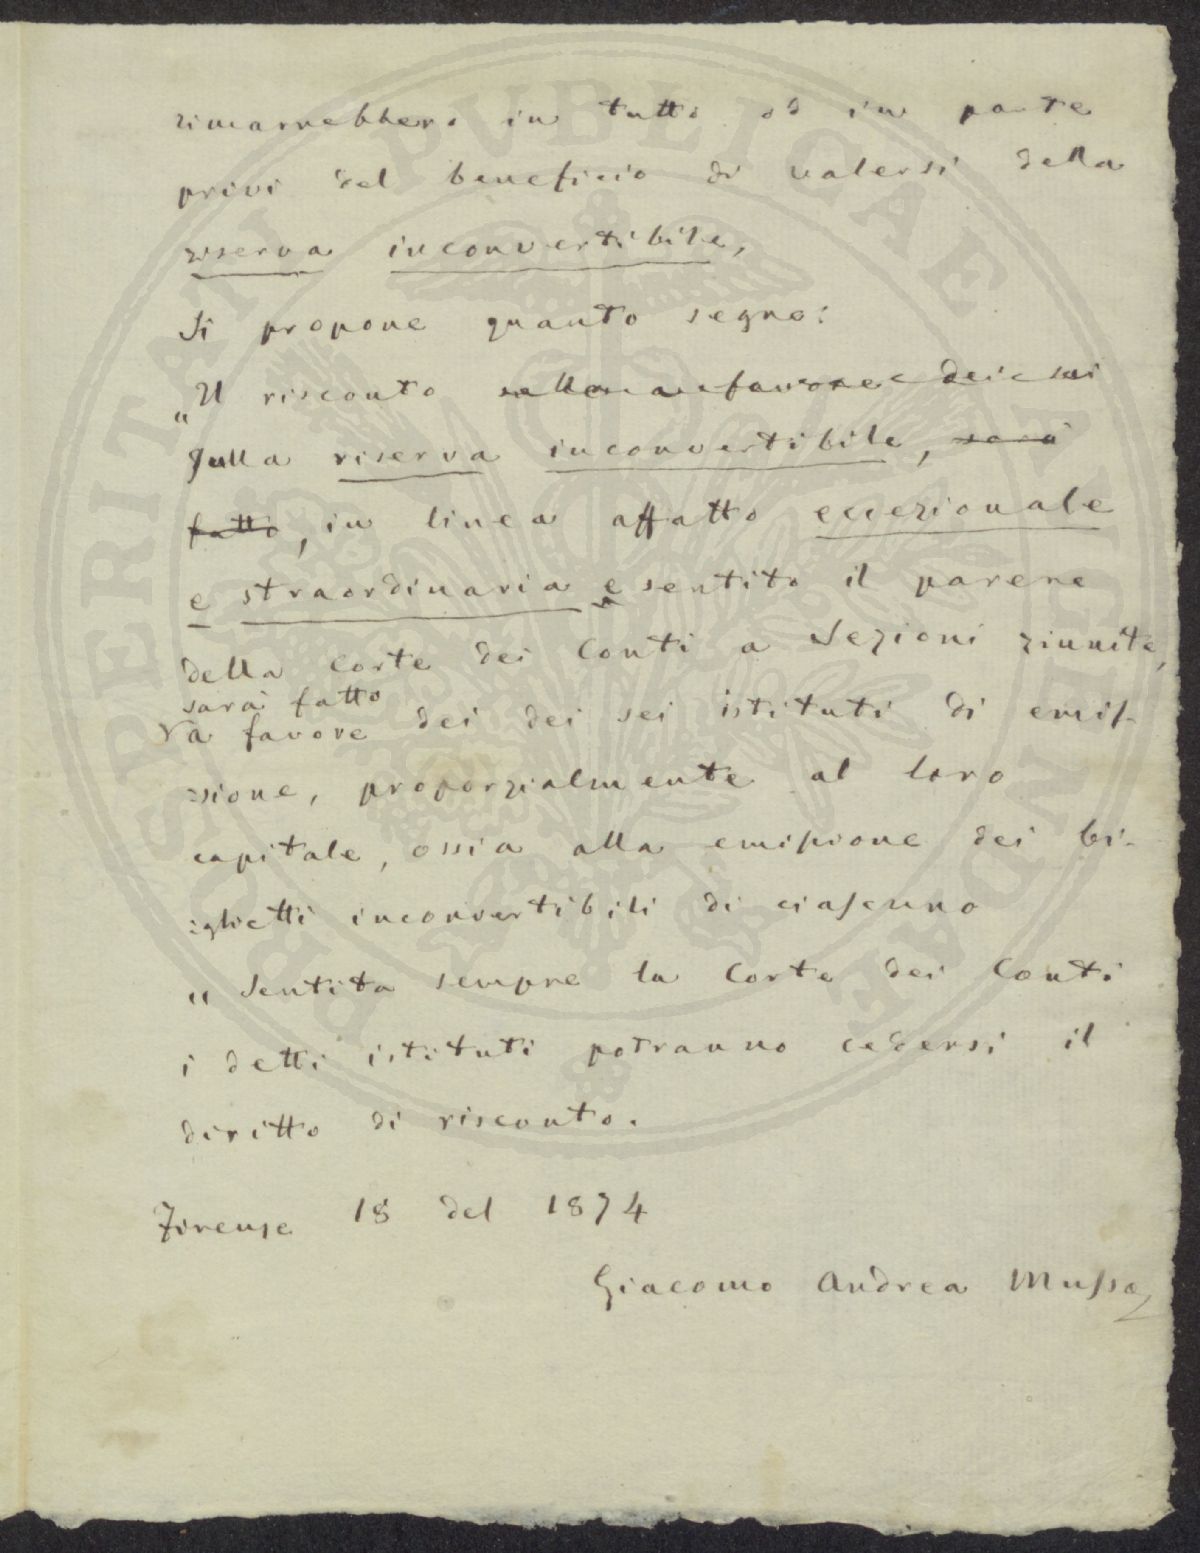 rimarrebbero in tutto od in parte
privi del beneficio di valersi della
riserva inconvertibile,
Si propone quanto segue:
„Il risconto sulla a favore dei sei
sulla riserva inconvertibile, sarà
fatto, in linea affatto eccezionale
e straordinaria e sentito il parere
della Corte dei Conti a Sezioni riunite,
sarà fatto
a favore dei dei sei istituti di emis-
sione, proporzialmente al loro
capitale, ossia alla emissione dei bi-
glietti inconvertibili di ciascuno
„ Sentita sempre la Corte dei Conti
i detti istituti potranno cedersi il
diritto di risconto.
Firenze 18 del 1874
Giacomo Andrea Musso
PROSPERITATI PVBLICAE AVGENDAE